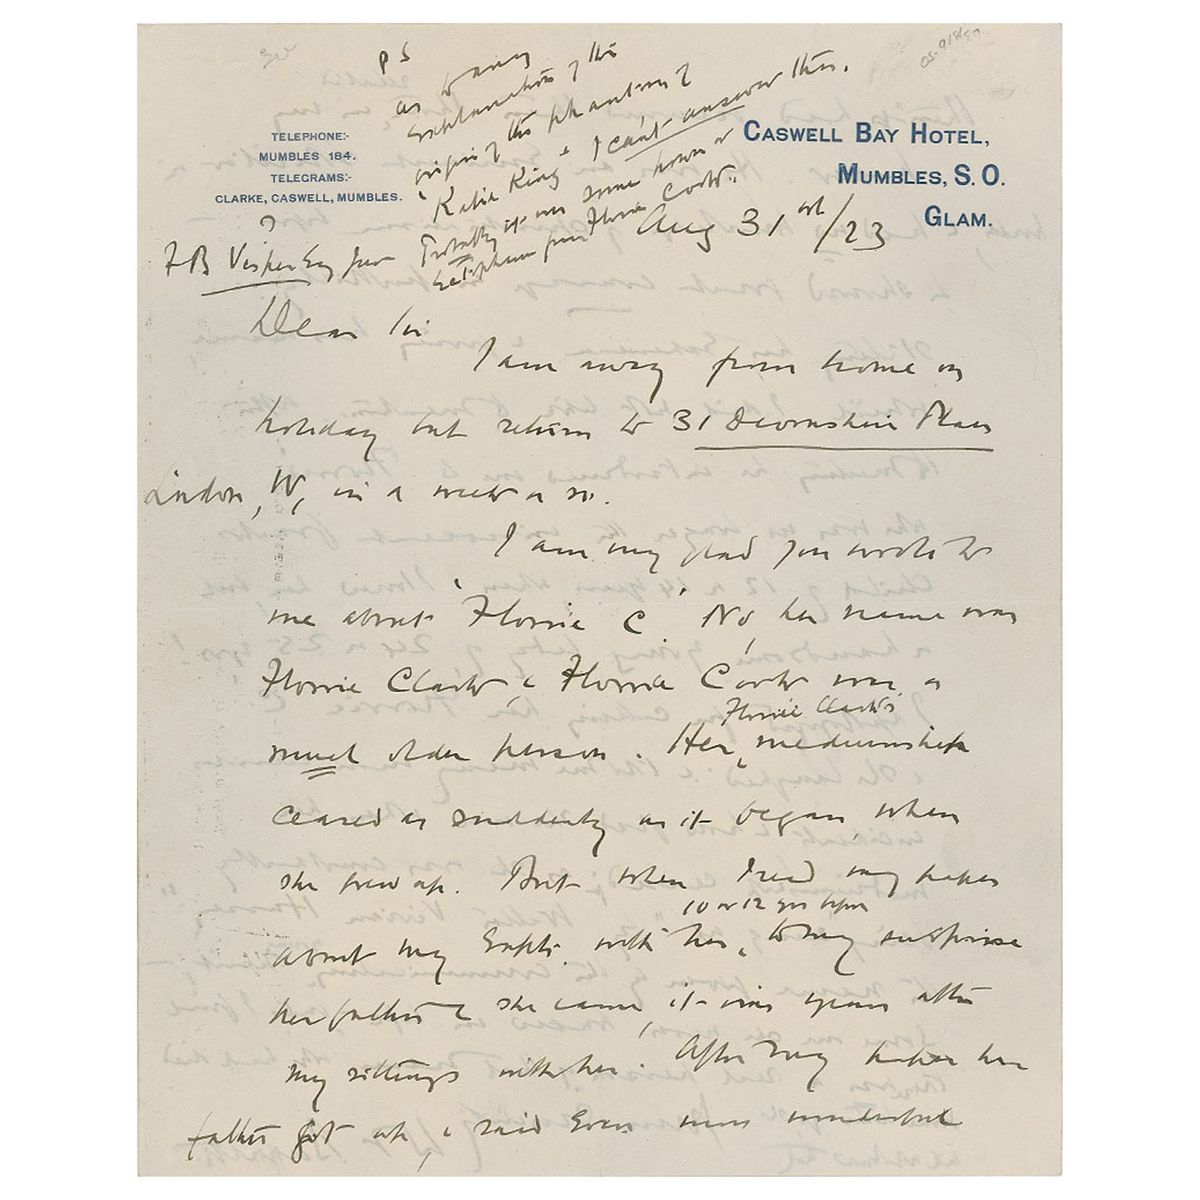 PS
as to any
explanation of the
origin of the phantom of
"Katie King" I can't answer this.
Probably it was some

TELEPHONE:-
MUMBLES 184.
TELEGRAMS:-
CLARKE, CASWELL, MUMBLES.
CASWELL BAY HOTEL,
MUMBLES, S. O.
GLAM.
Aug 31st/23
F B
Dear Sir
I am away from home on
holiday but return to 31 Devonshire Place
London, W, in a week or so.
I am very glad you wrote to
me about 'Florrie C'. No, her name was
Florrie Clark & Florrie Cook was a
much older person. Her Florrie Clark's mediumship
ceased as suddenly as it began when
she grew up. But when I read my paper
about my Expts. with her, 10 or 12 yrs to my surprise
her father & she came, it was years after
my sittings with her. After my paper her
father got up, & said even more wonderful